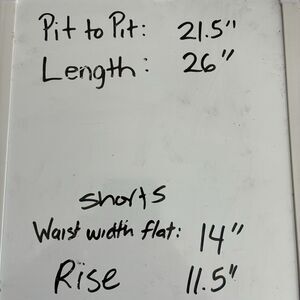 Pit to Pit: 21.5"
Length: 26"
shorts
Waist width flat: 14"
Rise 11.5"